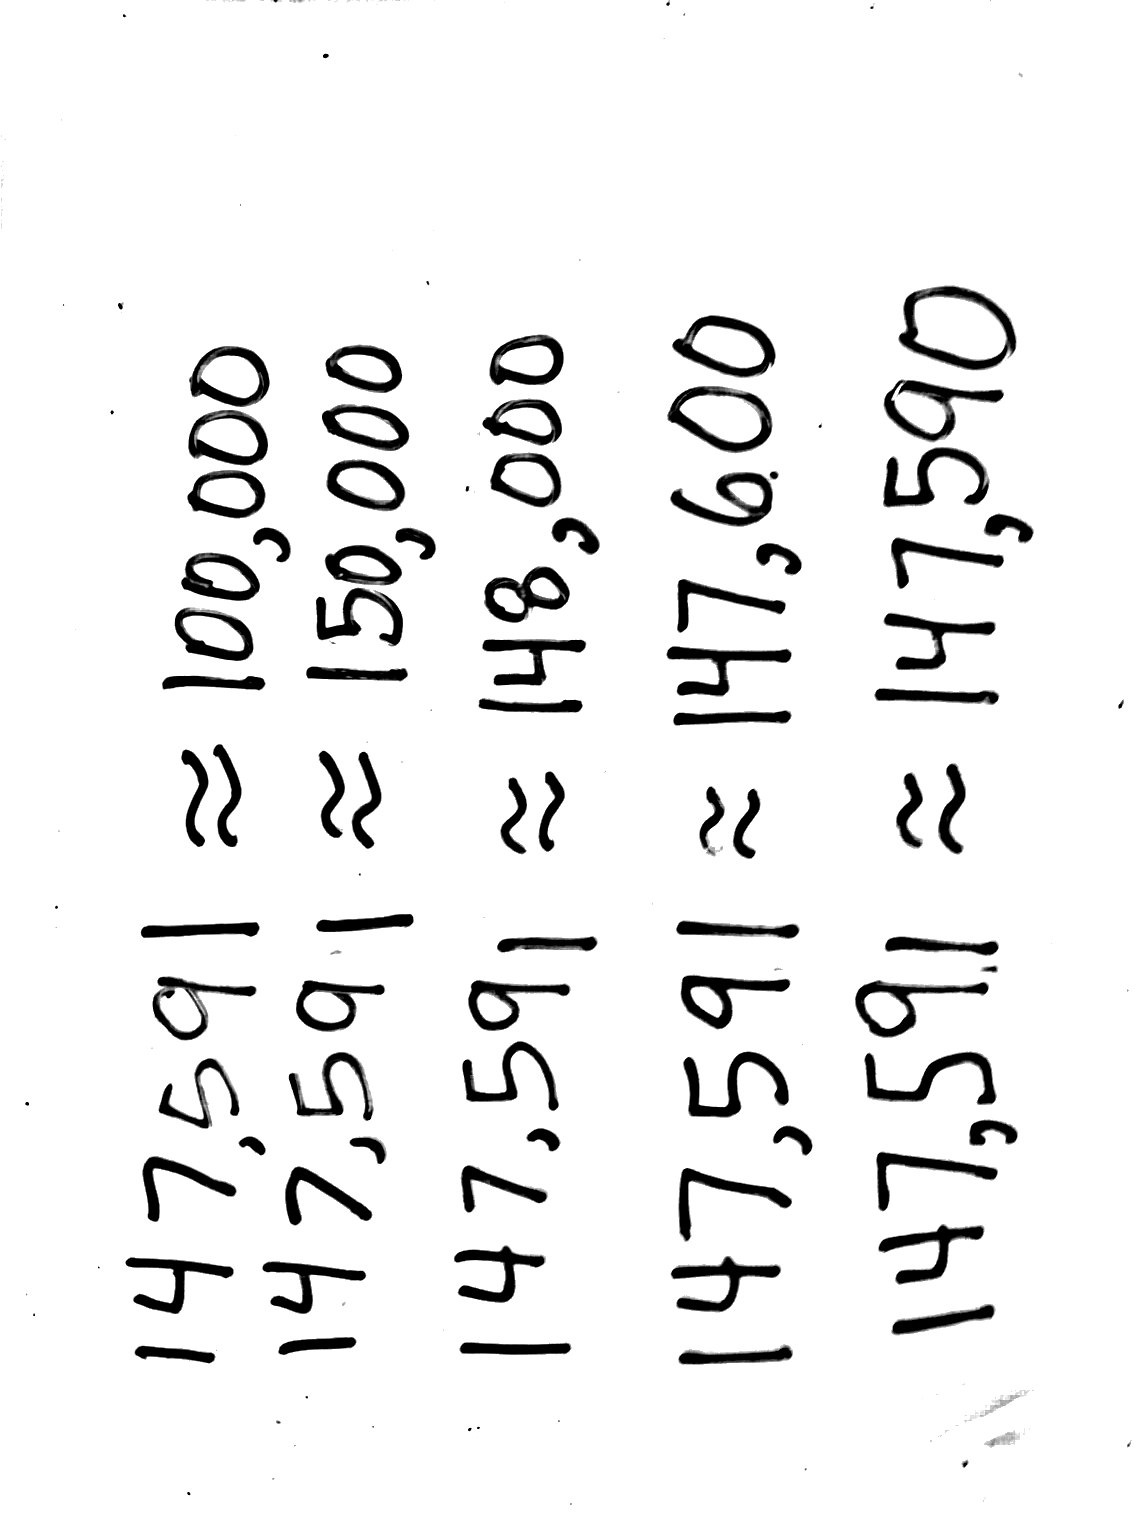 147,591 ≈ 100,000
147,591 ≈ 150,000
147,591 ≈ 148,000
147,591 ≈ 147,600
147,591 ≈ 147,590